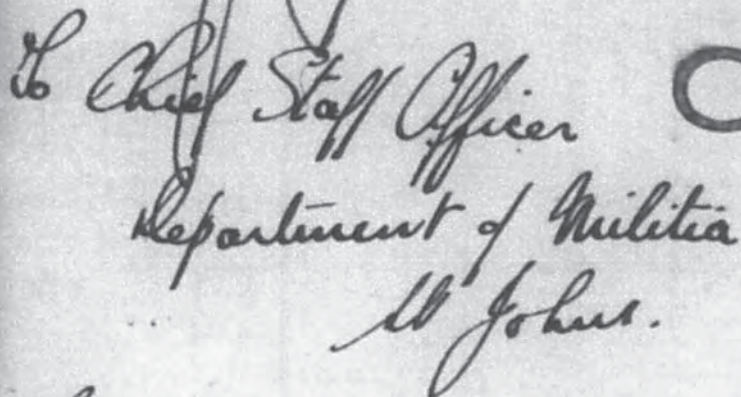 To Chief Staff Officer
Department of Militia
St Johns.